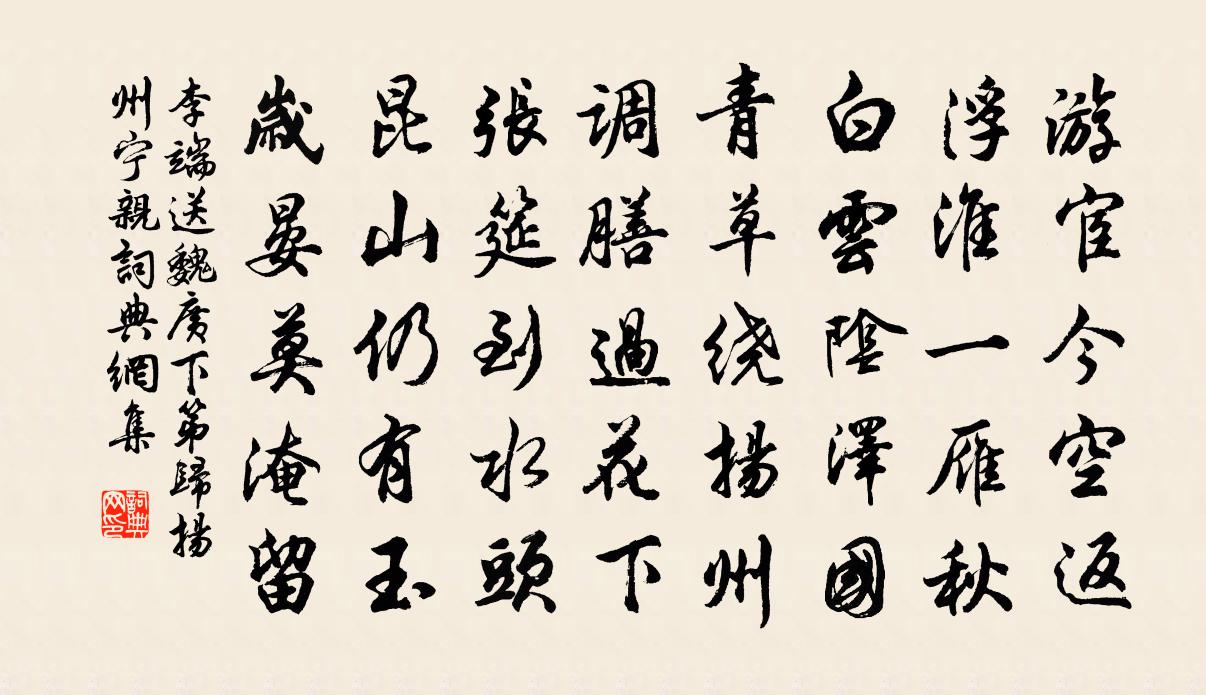 游宦今空返
浮淮一雁秋
白雲陰澤國
青草绕揚州
調膳過花下
張筵到水頭
昆山仍有玉
歲晏莫淹留
李端送魏廣下第歸揚
州宁親詞典網集
詞典网印